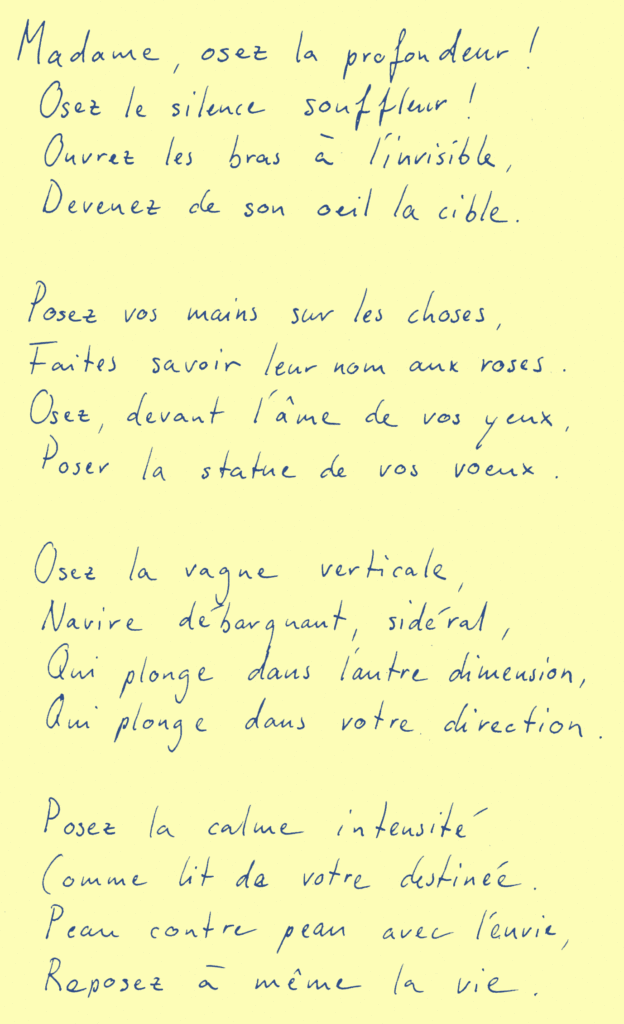 Madame, osez la profondeur !
Osez le silence souffleur !
Ouvrez les bras à l'invisible,
Devenez de son oeil la cible.
Posez vos mains sur les choses,
Faites savoir leur nom aux roses.
Osez, devant l'âme de vos yeux,
Poser la statue de vos voeux.
Osez la vague verticale,
Navire débarquant, sidéral,
Qui plonge dans l'autre dimension,
Qui plonge dans votre direction.
Posez la calme intensité
Comme lit de votre destinée.
Peau contre peau avec l'envie,
Reposez à même la vie.